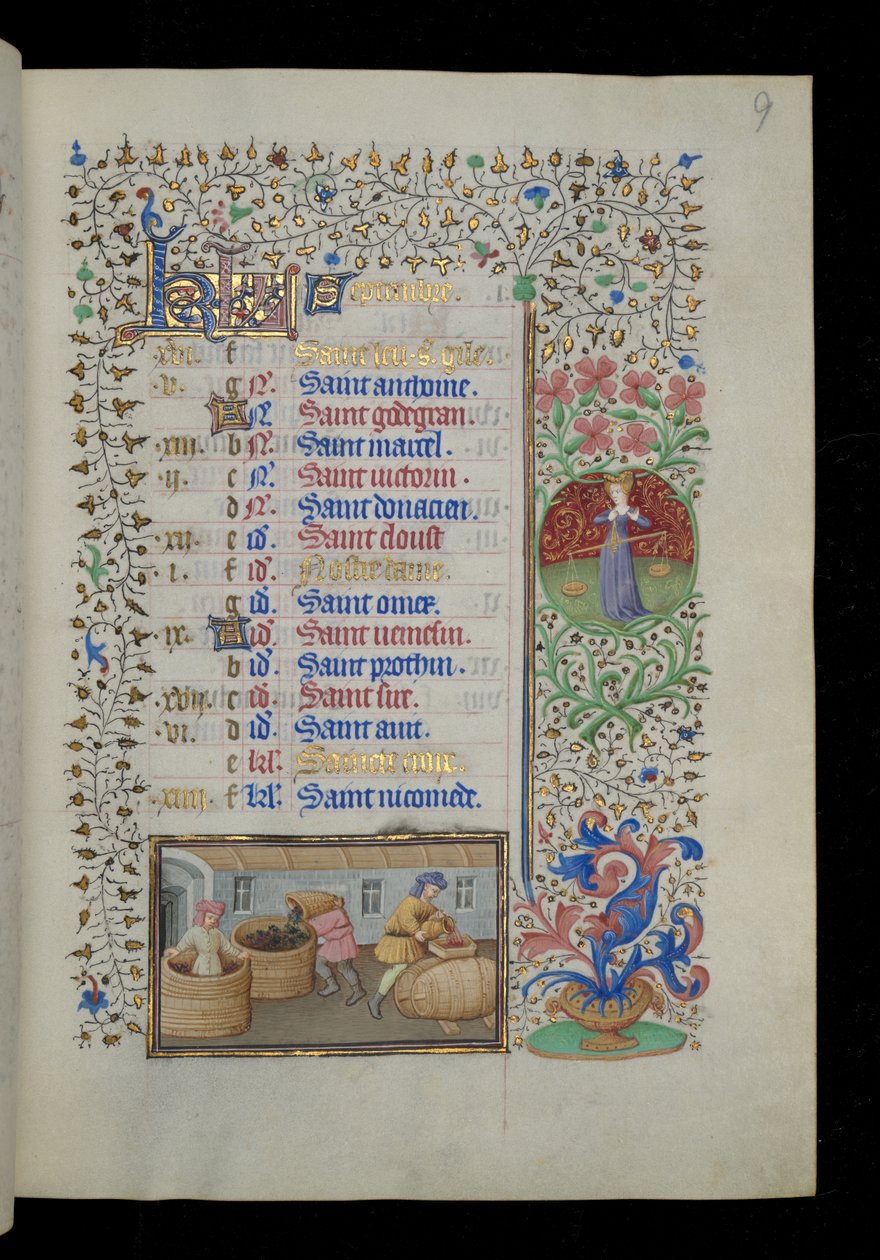 9
KL Septembre.
.xvi. f Saint leu. s. gile.
.v. g N. Saint anthoine.
A N. Saint godegran.
.xiii. b N. Saint marcel.
.ii. c N. Saint victorin.
d N. Saint donacien.
.xii. e id. Saint cloust
.i. f id. Nostre dame.
g id. Saint omer.
.ix. A id. Saint
b id. Saint prothin.
.xviii. c id. Saint sire.
.vi. d id. Saint aint.
e kl. Saincte croix.
.xiiii. f kl. Saint nicomede.